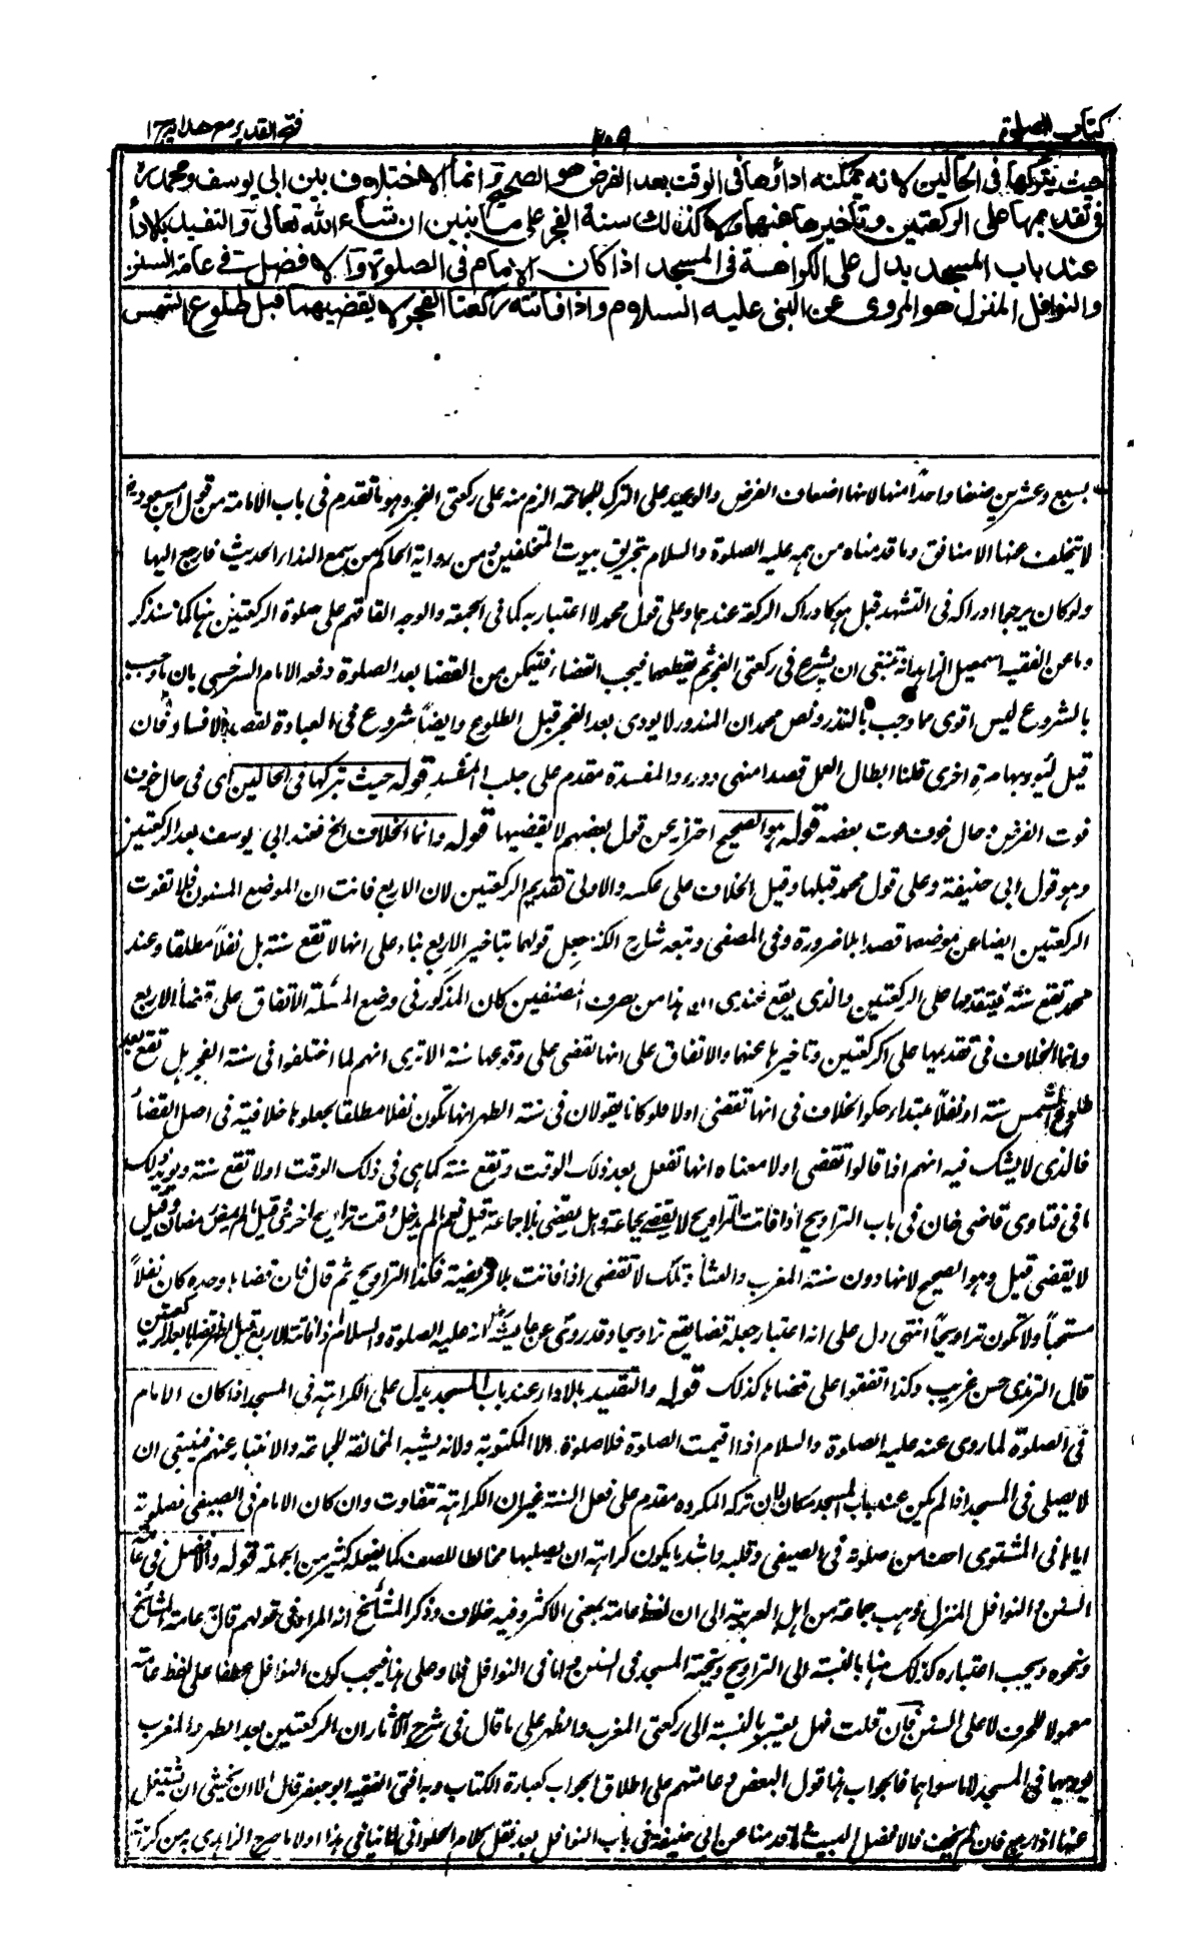 كتاب الصلوة
٢٠٩
فتح القدير مع هدايه ج١
حيث يتركها فى الحالين لانه يمكنه اداؤها فى الوقت بعد الفرض هو الصحيح وانما الاختلاف بين ابى يوسف ومحمد
فى تقديمها على الركعتين وتأخيرها عنهما ولا كذلك سنة الفجر على ما نبين ان شاء الله تعالى والتقييد بالاداء
عند باب المسجد يدل على الكراهة فى المسجد اذا كان الامام فى الصلوة والافضل فى عامة السنن
والنوافل المنزل هو المروى عن النبى عليه السلام واذا فاتته ركعتا الفجر لا يقضيهما قبل طلوع الشمس
بسبع وعشرين ضعفا واحدا منها لانها اضعاف الفرض والوعيد على الترك للجماعة الزم منه على ركعتى الفجر وهو ما تقدم فى باب الامامة من قول ابن مسعود
لا يتخلف عنها الا منافق وما قدمناه من همه عليه الصلوة والسلام بتحريق بيوت المتخلفين ومن رواية الحاكم من سمع النداء الحديث فارجع اليها
ولو كان يرجو ادراكه فى التشهد قيل هو كادراك الركعة عندهما وعلى قول محمد لا اعتبار به كما فى الجمعة والوجه اتفاقهم على صلوة الركعتين هنا كما سنذكر
وما عن الفقيه اسمعيل الزاهد انه ينبغى ان يشرع فى ركعتى الفجر ثم يقطعهما فيجب القضاء فيتمكن من القضا بعد الصلوة دفعه الامام السرخسى بان ما وجب
بالشروع ليس اقوى مما وجب بالنذر ونص محمد ان المنذور لا يودى بعد الفجر قبل الطلوع وايضا شروع فى العبادة لقصد الافساد فان
قيل ليوديها مرة اخرى قلنا ابطال العمل قصدا منهى ودرء المفسدة مقدم على جلب المنفعة قوله حيث يتركها فى الحالين اى فى حال خوف
فوت الفرض وحال خوف فوت بعضه قوله هو الصحيح احتراز عن قول بعضهم لا يقضيها قوله وانما الخلاف الخ فعند ابى يوسف بعد الركعتين
وهو قول ابى حنيفة وعلى قول محمد قبلها وقيل الخلاف على عكسه والاولى تقديم الركعتين لان الاربع فاتت عن الموضع المسنون فلا تفوت
الركعتين ايضا عن موضعهما قصدا بلا ضرورة وفى المصفى وتبعه شارح الكنز جعل قولهما بتاخير الاربع بناء على انها لا تقع سنة بل نفلا مطلقا وعند
محمد تقع سنة فيقدمها على الركعتين والذى يقع عندى ان هذا من تصرف المصنفين كان المذكور فى وضع المسئلة الاتفاق على قضاء الاربع
وانما الخلاف فى تقديمها على الركعتين وتاخيرها عنهما والاتفاق على انها تقضى على وقوعها سنة الا ترى انهم لما اختلفوا فى سنة الفجر هل تقع بعد
طلوع الشمس سنة او نفلا مبتداء حكوا الخلاف فى انها تقضى اولا فلو كانا يقولان فى سنة الظهر انها تكون نفلا مطلقا لجعلوها خلافية فى اصل القضاء
فالذى لا يشك فيه انهم اذا قالوا تقضى اولا معناه انها تفعل بعد ذلك الوقت وتقع سنة كما هى فى ذلك الوقت اولا تقع سنة ويؤيد ذلك
ما فى فتاوى قاضى خان فى باب التراويح اذا فاتت التراويح لا تقضى بجماعة وهل يقضى بلا جماعة قيل نعم ما لم يدخل وقت تراويح اخرى وقيل ما لم يمض رمضان وقيل
لا يقضى قيل وهو الصحيح لانها دون سنة المغرب والعشاء وتلك لا تقضى اذا فاتت بلا فريضة فكذا التراويح ثم قال فان قضاها وحده كان نفلا
مستحبا ولا تكون تراويحا انتهى دل على انه اعتبار جعله قضا يقع تراويحا وقد روى عن عايشة انه عليه الصلوة والسلام اذا فاتته الاربع قبل الظهر قضاها بعد الركعتين
قال الترمذى حسن غريب وكذا اتفقوا على قضاها كذلك قوله والتقييد بالاداء عند باب المسجد يدل على الكراهة فى المسجد اذا كان الامام
فى الصلوة لما روى عنه عليه الصلوة والسلام اذا اقيمت الصلوة فلا صلوة الا المكتوبة ولانه يشبه المخالفة للجماعة والانتباذ عنهم فينبغى ان
لا يصلى فى المسجد اذا لم يكن عند باب المسجد مكان لان ترك المكروه مقدم على فعل السنة غير ان الكراهة تتفاوت وان كان الامام فى الصيفى فصلوته
اياها فى الشتوى اخف من صلوته فى الصيفى وقلبه واشد ما يكون كراهة ان يصليها مخالطا للصف كما يفعله كثير من الجهلة قوله والافضل فى عامة
السنن والنوافل المنزل ذهب جماعة من اهل العربية الى ان لفظ عامة بمعنى الاكثر وفيه خلاف وذكر المشائخ انه المراد فى قولهم قال به عامة المشائخ
ونحوه ويجب اعتباره كذلك هنا بالنسبة الى التراويح وتحية المسجد فى السنن واما فى النوافل فلا وعلى هذا فيجب كون النوافل عطفا على لفظ عامة
معمولا للحرف لا على السنن فان قلت فهل يعتبر بالنسبة الى ركعتى المغرب والظهر على ما قال فى شرح الآثار ان الركعتين بعد الظهر والمغرب
يوديهما فى المسجد لا ما سواهما فالجواب هذا قول البعض وعامتهم على اطلاق الجواب كعبارة الكتاب وبه افتى الفقيه ابو جعفر قال الا ان يخشى ان يشتغل
عنها اذا رجع فان لم يخف فالافضل البيت وقدمنا عن ابى حنيفة فى باب النوافل بعد نقل كلام الحلوانى